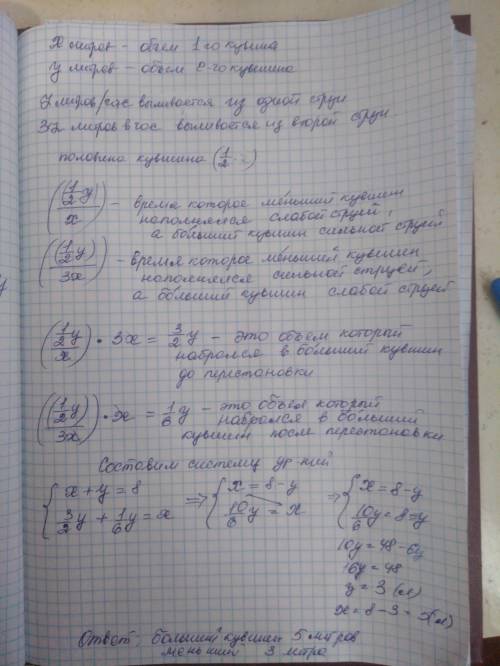 X литров - объем 1-го кувшина
У литров - объем 2-го кувшина
Z литров/час выливается из одной струи
3Z литров в час выливается из второй струи
половина кувшина (1/2
((1/2 y)/x) - время которое меньший кувшин
наполнялся слабой струей,
а больший кувшин сильной струей
((1/2 y)/3x) - время которое меньший кувшин
наполнялся сильной струей,
а больший кувшин слабой струей
((1/2 y)/x) · 3x = 3/2 y - это объем который
набрался в больший кувшин
до перестановки
((1/2 y)/3x) · x = 1/6 y - это объем который
набрался в больший
кувшин после перестановки
Составим систему ур-ний
{ x + y = 8 => { x = 8 - y => { x = 8 - y
{ 3/2 y + 1/6 y = x { 10/6 y = x { 10/6 y = 8 - y
10y = 48 - 6y
16y = 48
y = 3 (л)
x = 8 - 3 = 5 (л)
Ответ: больший кувшин 5 литров
меньший 3 литра